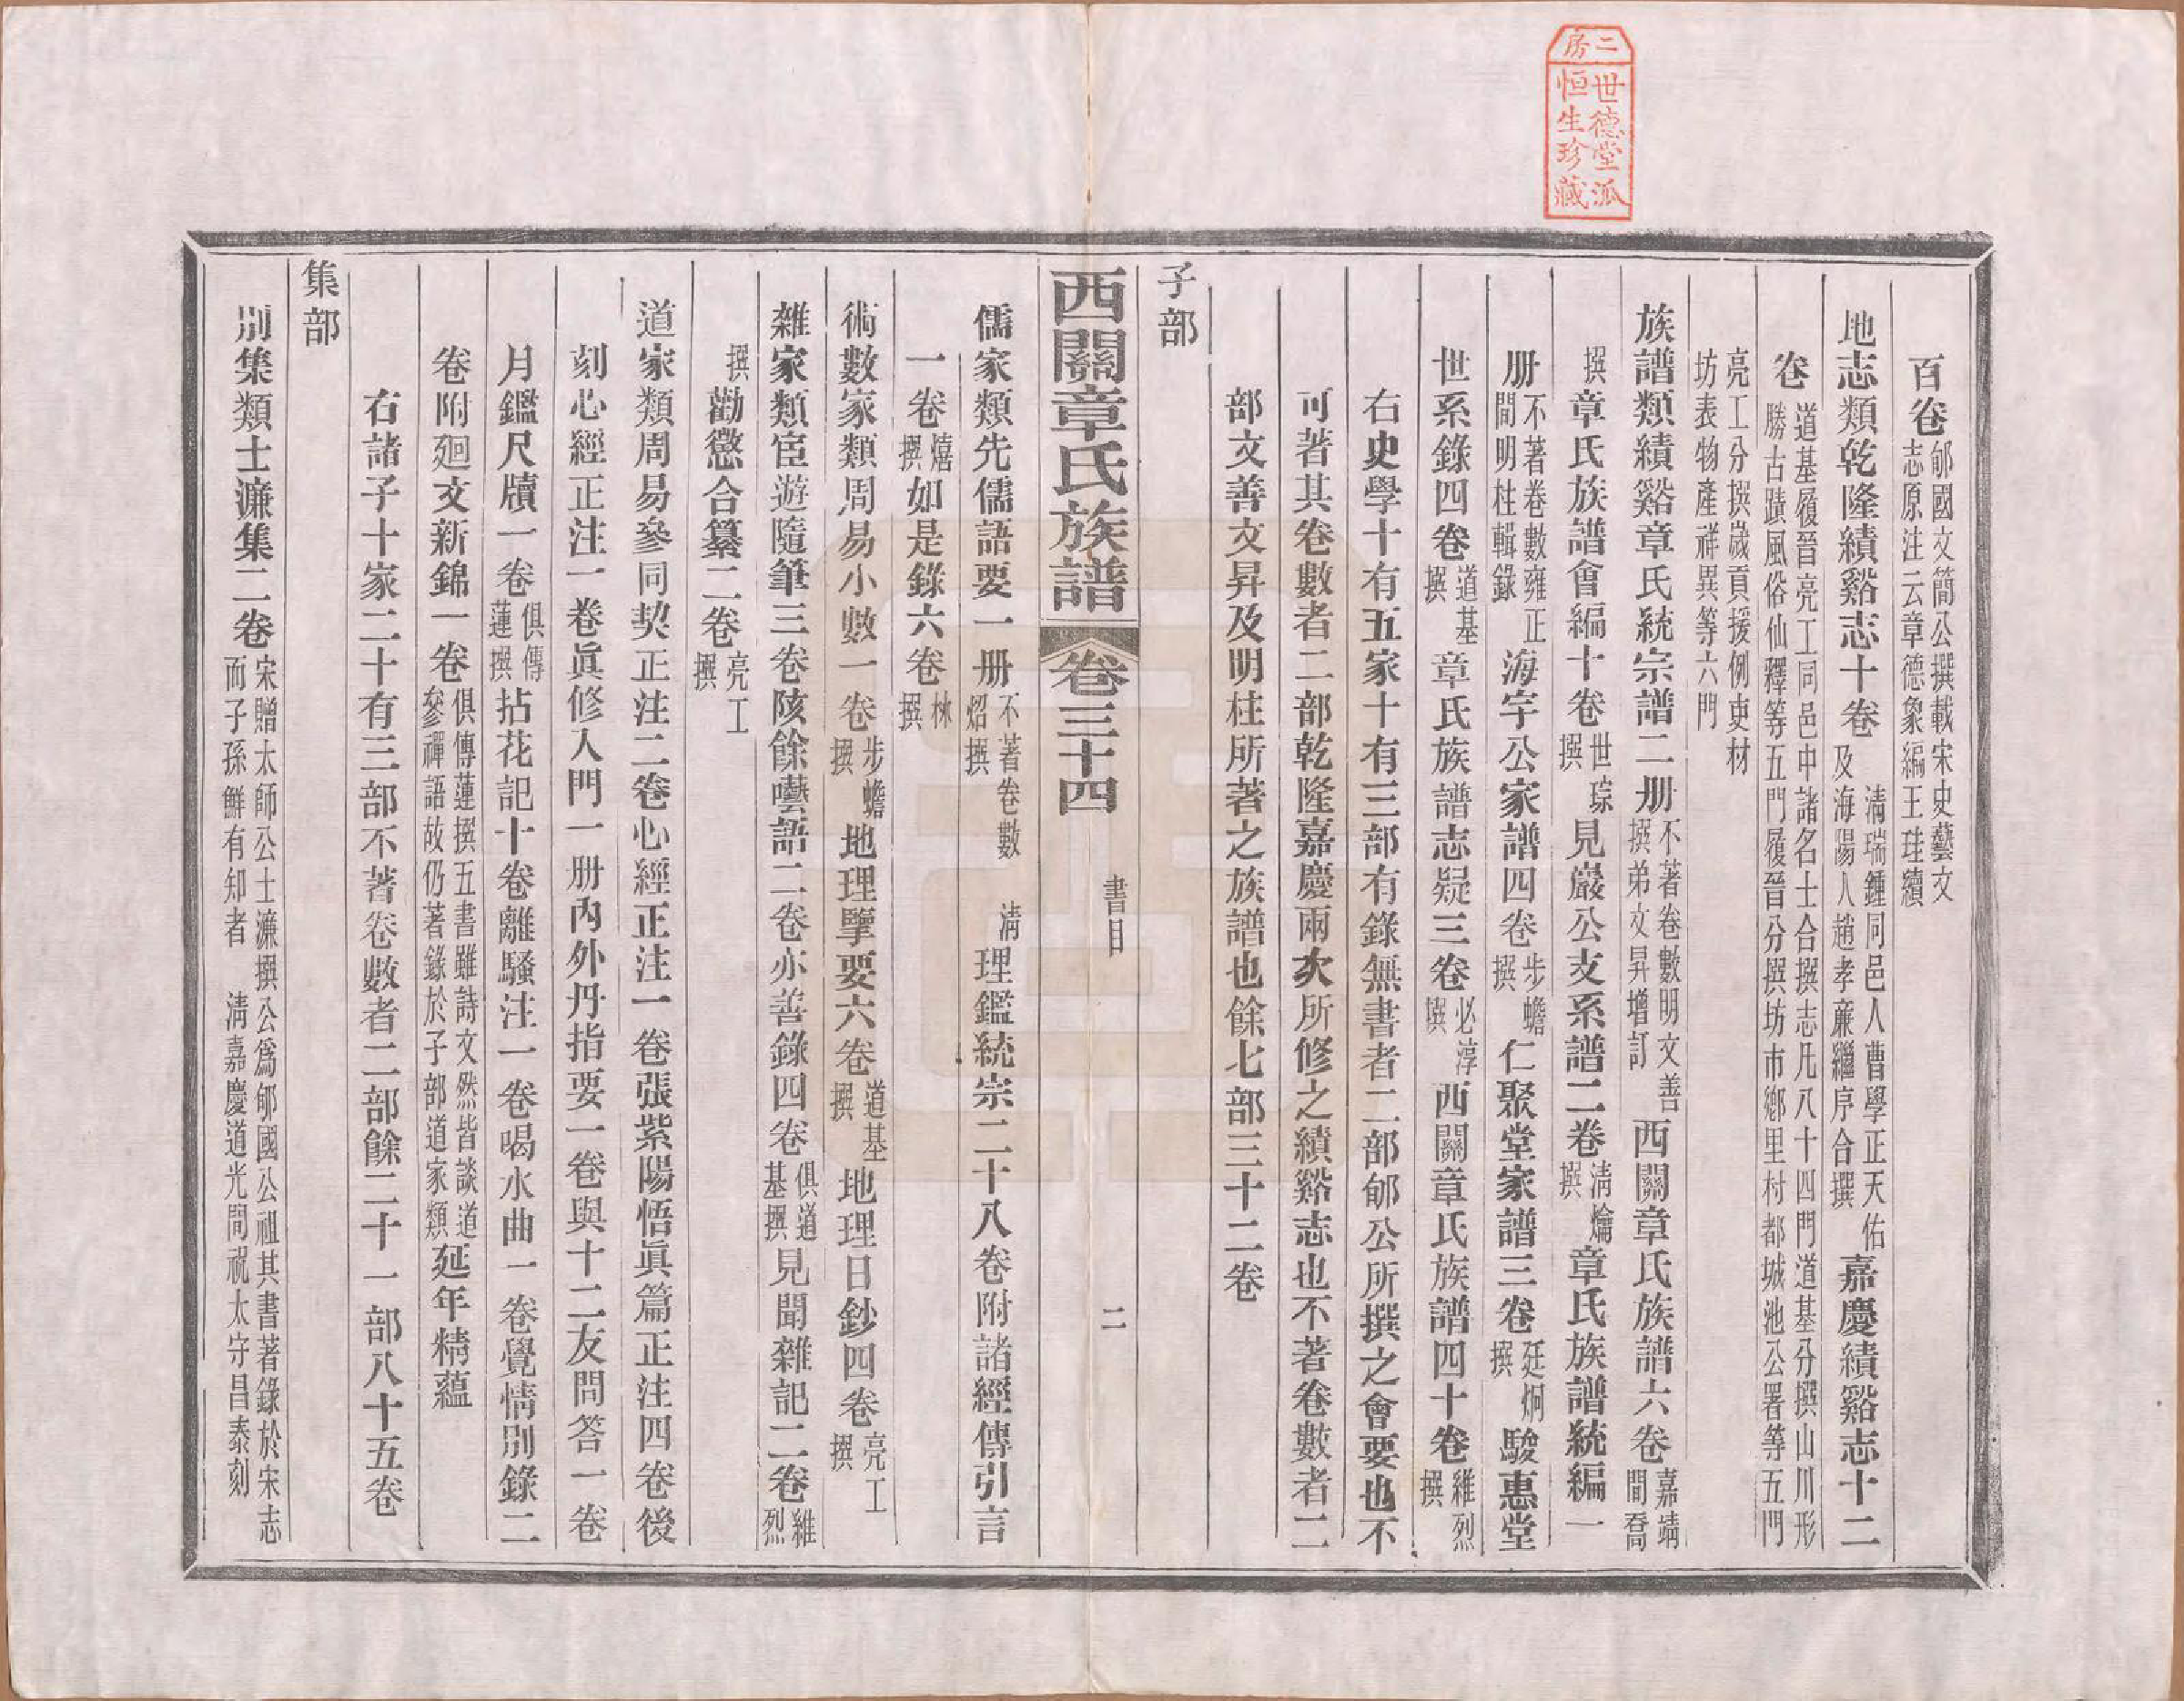 二房
世德堂派
恒生珍藏
百卷郇國文簡公撰載宋史藝文志原注云章德象編王珪續
地志類乾隆績谿志十卷清瑞鍾同邑人曹學正天佑及海陽人趙孝廉繼序合撰嘉慶績谿志十二
卷道基履晉亮工同邑中諸名士合撰志凡八十四門道基分撰山川形勝古蹟風俗仙釋等五門履晉分撰坊市鄉里村都城池公署等五門
亮工分撰歲貢援例吏材坊表物產祥異等六門
族譜類績谿章氏統宗譜二册不著卷數明文善撰弟文昇增訂西關章氏族譜六卷嘉靖間喬
撰章氏族譜會編十卷世琮撰見嚴公支系譜二卷清爚撰章氏族譜統編一
册不著卷數雍正間明柱輯錄海宇公家譜四卷步蟾撰仁聚堂家譜三卷廷炯撰駿惠堂
世系錄四卷道基撰章氏族譜志疑三卷必淳撰西關章氏族譜四十卷維烈撰
右史學十有五家十有三部有錄無書者二部郇公所撰之會要也不
可著其卷數者二部乾隆嘉慶兩次所修之績谿志也不著卷數者二
部文善文昇及明柱所著之族譜也餘七部三十二卷
子部
西關章氏族譜 卷三十四 書目 二
儒家類先儒語要一册不著卷數清炤撰理鑑統宗二十八卷附諸經傳引言
一卷熺撰如是錄六卷楙撰
術數家類周易小數一卷步蟾撰地理擥要六卷道基撰地理日鈔四卷亮工撰
雜家類宦遊隨筆三卷陔餘囈語二卷亦善錄四卷俱道基撰見聞雜記二卷維烈
撰勸懲合纂二卷亮工撰
道家類周易參同契正注二卷心經正注一卷張紫陽悟眞篇正注四卷後
刻心經正注一卷眞修入門一册內外丹指要一卷與十二友問答一卷
月鑑尺牘一卷俱傳蓮撰拈花記十卷離騷注一卷喝水曲一卷覺情別錄二
卷附廻文新錦一卷俱傳蓮撰五書雖詩文然皆談道參禪語故仍著錄於子部道家類延年精蘊
右諸子十家二十有三部不著卷數者二部餘二十一部八十五卷
集部
別集類士濂集二卷宋贈太師公士濂撰公爲郇國公祖其書著錄於宋志而子孫鮮有知者 清嘉慶道光間祝太守昌泰刻